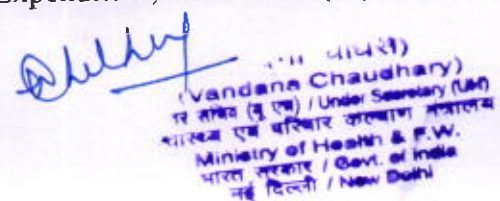 (Vandana Chaudhary)
सचिव (यू एच) / Under Secretary (UH)
एवं परिवार कल्याण मंत्रालय
Ministry of Health & F.W.
भारत सरकार / Govt. of India
नई दिल्ली / New Delhi